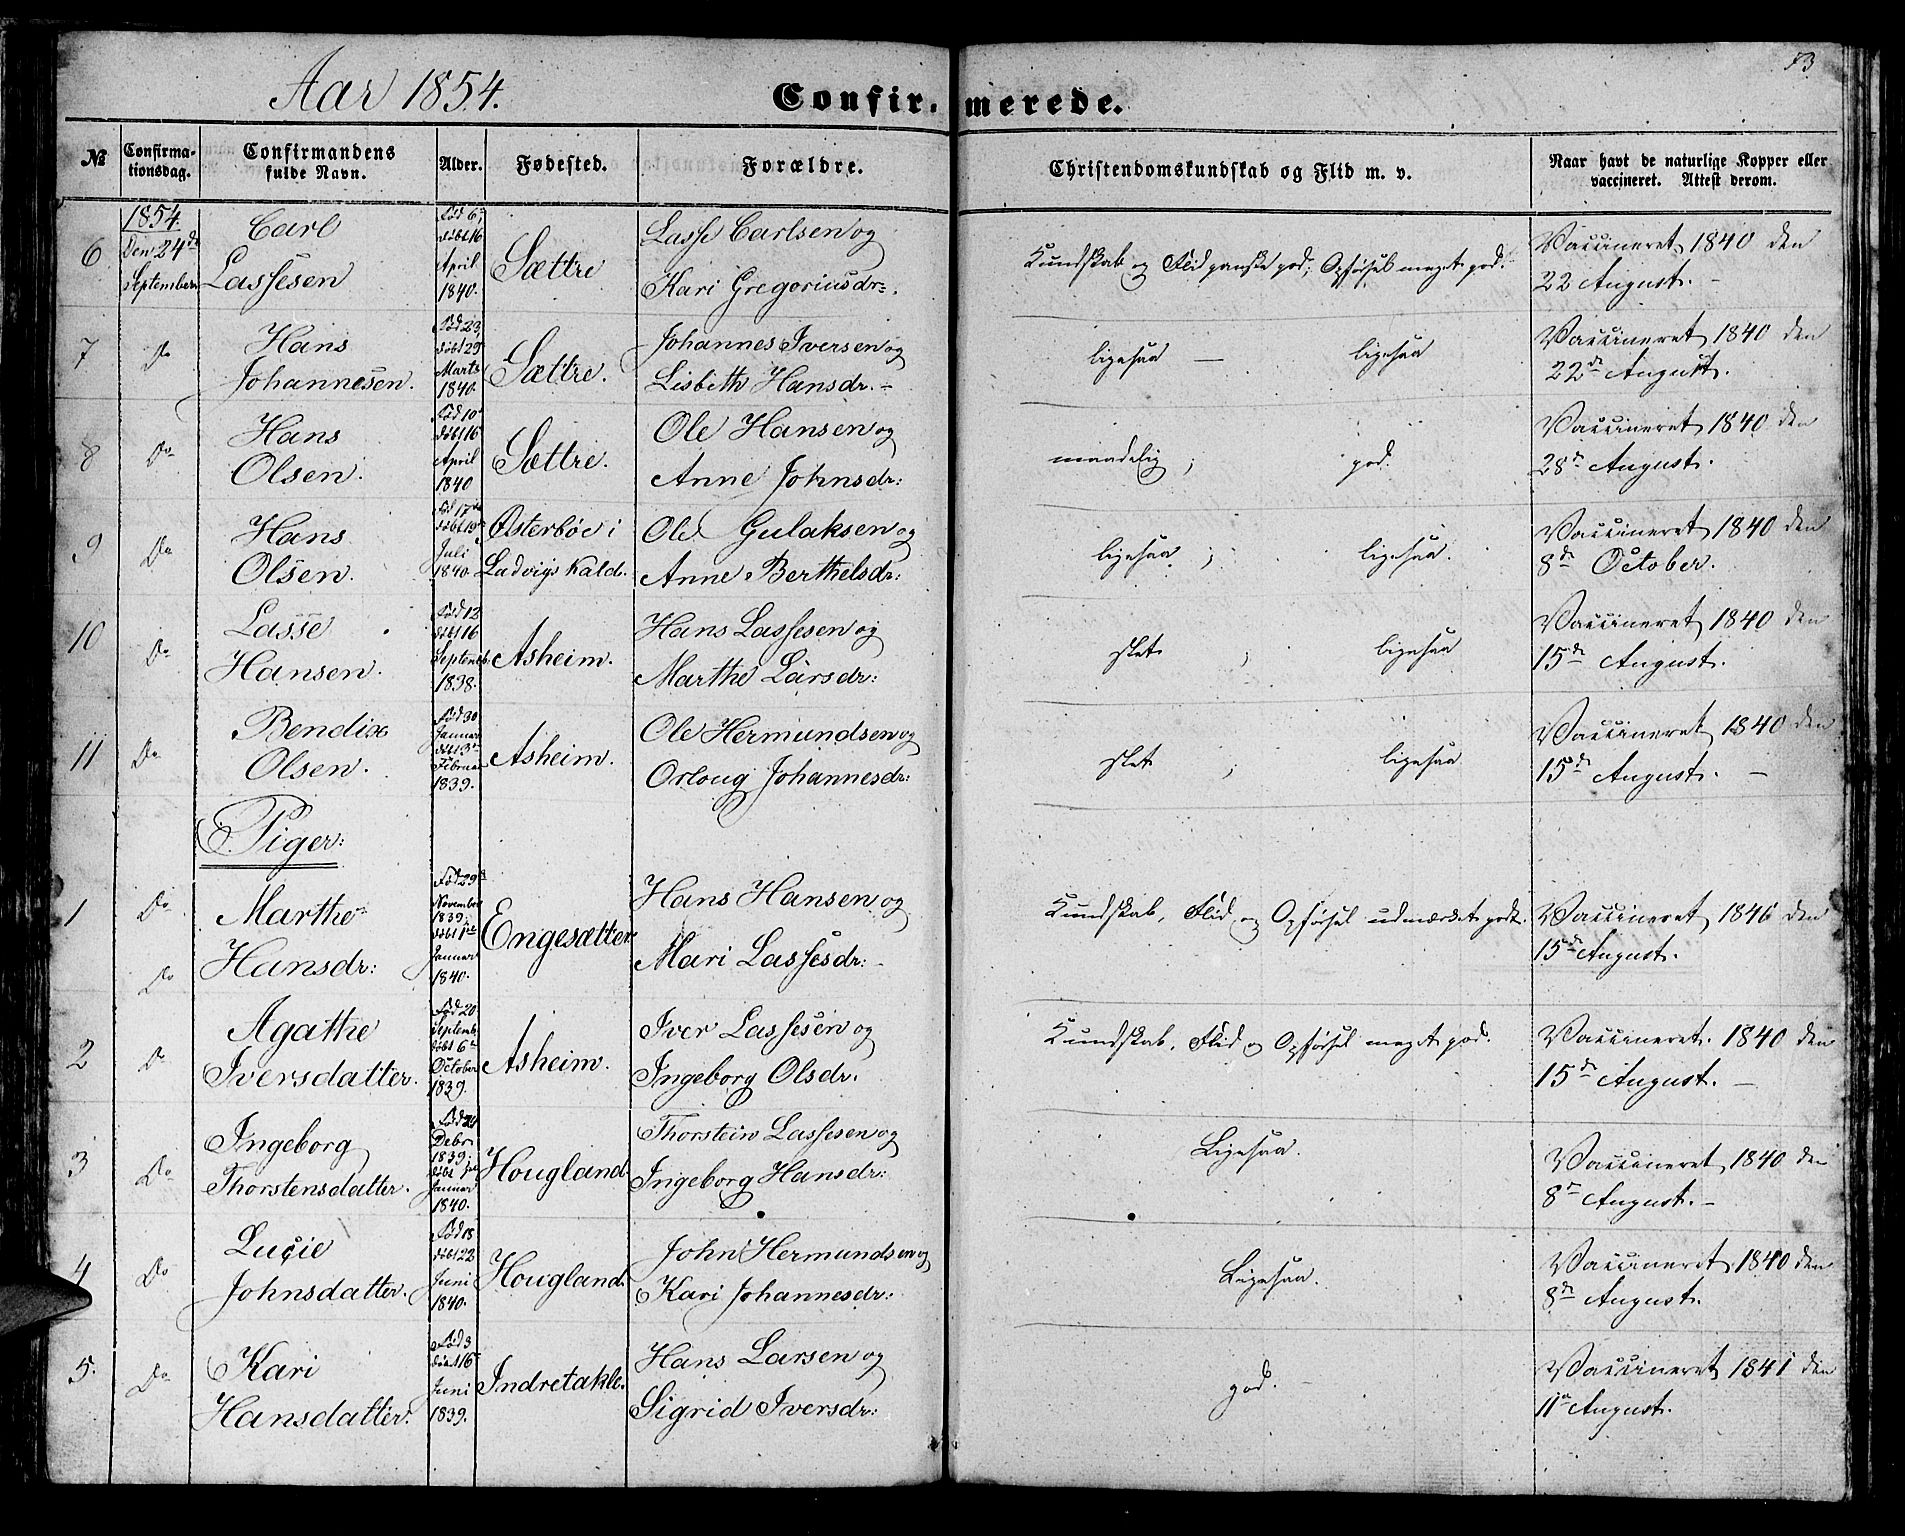 Aar 1854.
Confirmerede.
73
№
Confirmationsdag.
Confirmandens fulde Navn.
Alder.
Fødested.
Forældre.
Christendomskundskab og Flid m. v.
Naar havt de naturlige Kopper eller vaccineret. Attest derom.
6 1854. Den 24de September Carl Lassesen Fød 6, døbt 16 April 1840. Sættre Lasse Carlsen og Kari Gregoriusdr. Kundskab og Flid ganske god; Opførsel meget god. Vaccineret 1840 den 22 August. –
7 Do Hans Johannesen. Fød 23, døbt 29 Marts 1840. Sættre. Johannes Iversen og Lisbeth Hansdr. – ligesaa — ligesaa Vaccineret 1840 den 22de August.
8 Do Hans Olsen. Fød 10 døbt 16 April 1840 Sættre. Ole Hansen og Anne Johnsdr: maadelig ; god. Vaccineret 1840 den 28de August.
9 Do Hans Olsen. Fød 17de døbt 19de Juli 1840. Østerbøe i Ladvigs Kald. Ole Gulaksen og Anne Berthelsdr: ligesaa ; ligesaa. Vaccineret 1840 den 8de October.
10 Do Lasse Hansen. Fød 12 døbt 16 Septemb. 1838. Asheim. Hans Lassesen og Marthe Larsdr: slet ; ligesaa Vaccineret 1840 den 15de August.
11 Do Bendix Olsen. Fød 30 Januar døbt 3de Februar 1839. Asheim. Ole Hermundsen og Orloug Johannesdr: slet ; ligesaa Vaccineret 1840 den 15de August. –
Piger:
1 Do Marthe Hansdr: Do Fød 29 November 1839; døbt 1ste Januar 1840. Engesætter Hans Hansen og Mari Lassesdr: – Kundskab, Flid og Opførsel udmærket godt. Vaccineret 1840 den 15de August.
2 Do Agathe Iversdatter. Fød 20 Septemb. døbt 6te October 1839. Asheim. Iver Lassesen og Ingeborg Olsdr. Kundskab, Flid og Opførsel meget god. Vaccineret 1840 den 15de August. –
3 Do Ingeborg Thorstensdatter. Debr 1839; døbt Januar 1840. Hougland. Thorstein Lassesen og Ingeborg Hansdr: Ligesaa. Vaccineret 1840 den 8de August. –
4 Do Lucie Johnsdatter. Fød 18 døbt 22 Juni 1840. Hougland. John Hermundsen og Kari Johannesdr: Ligesaa. Vaccineret 1840 den 8de August.
5. Do Kari Hansdatter. Fød 3 døbt 16 Juni 1839. Indretakle. Hans Larsen og Sigrid Iversdr: god. – Vaccineret 1841 den 11te August.